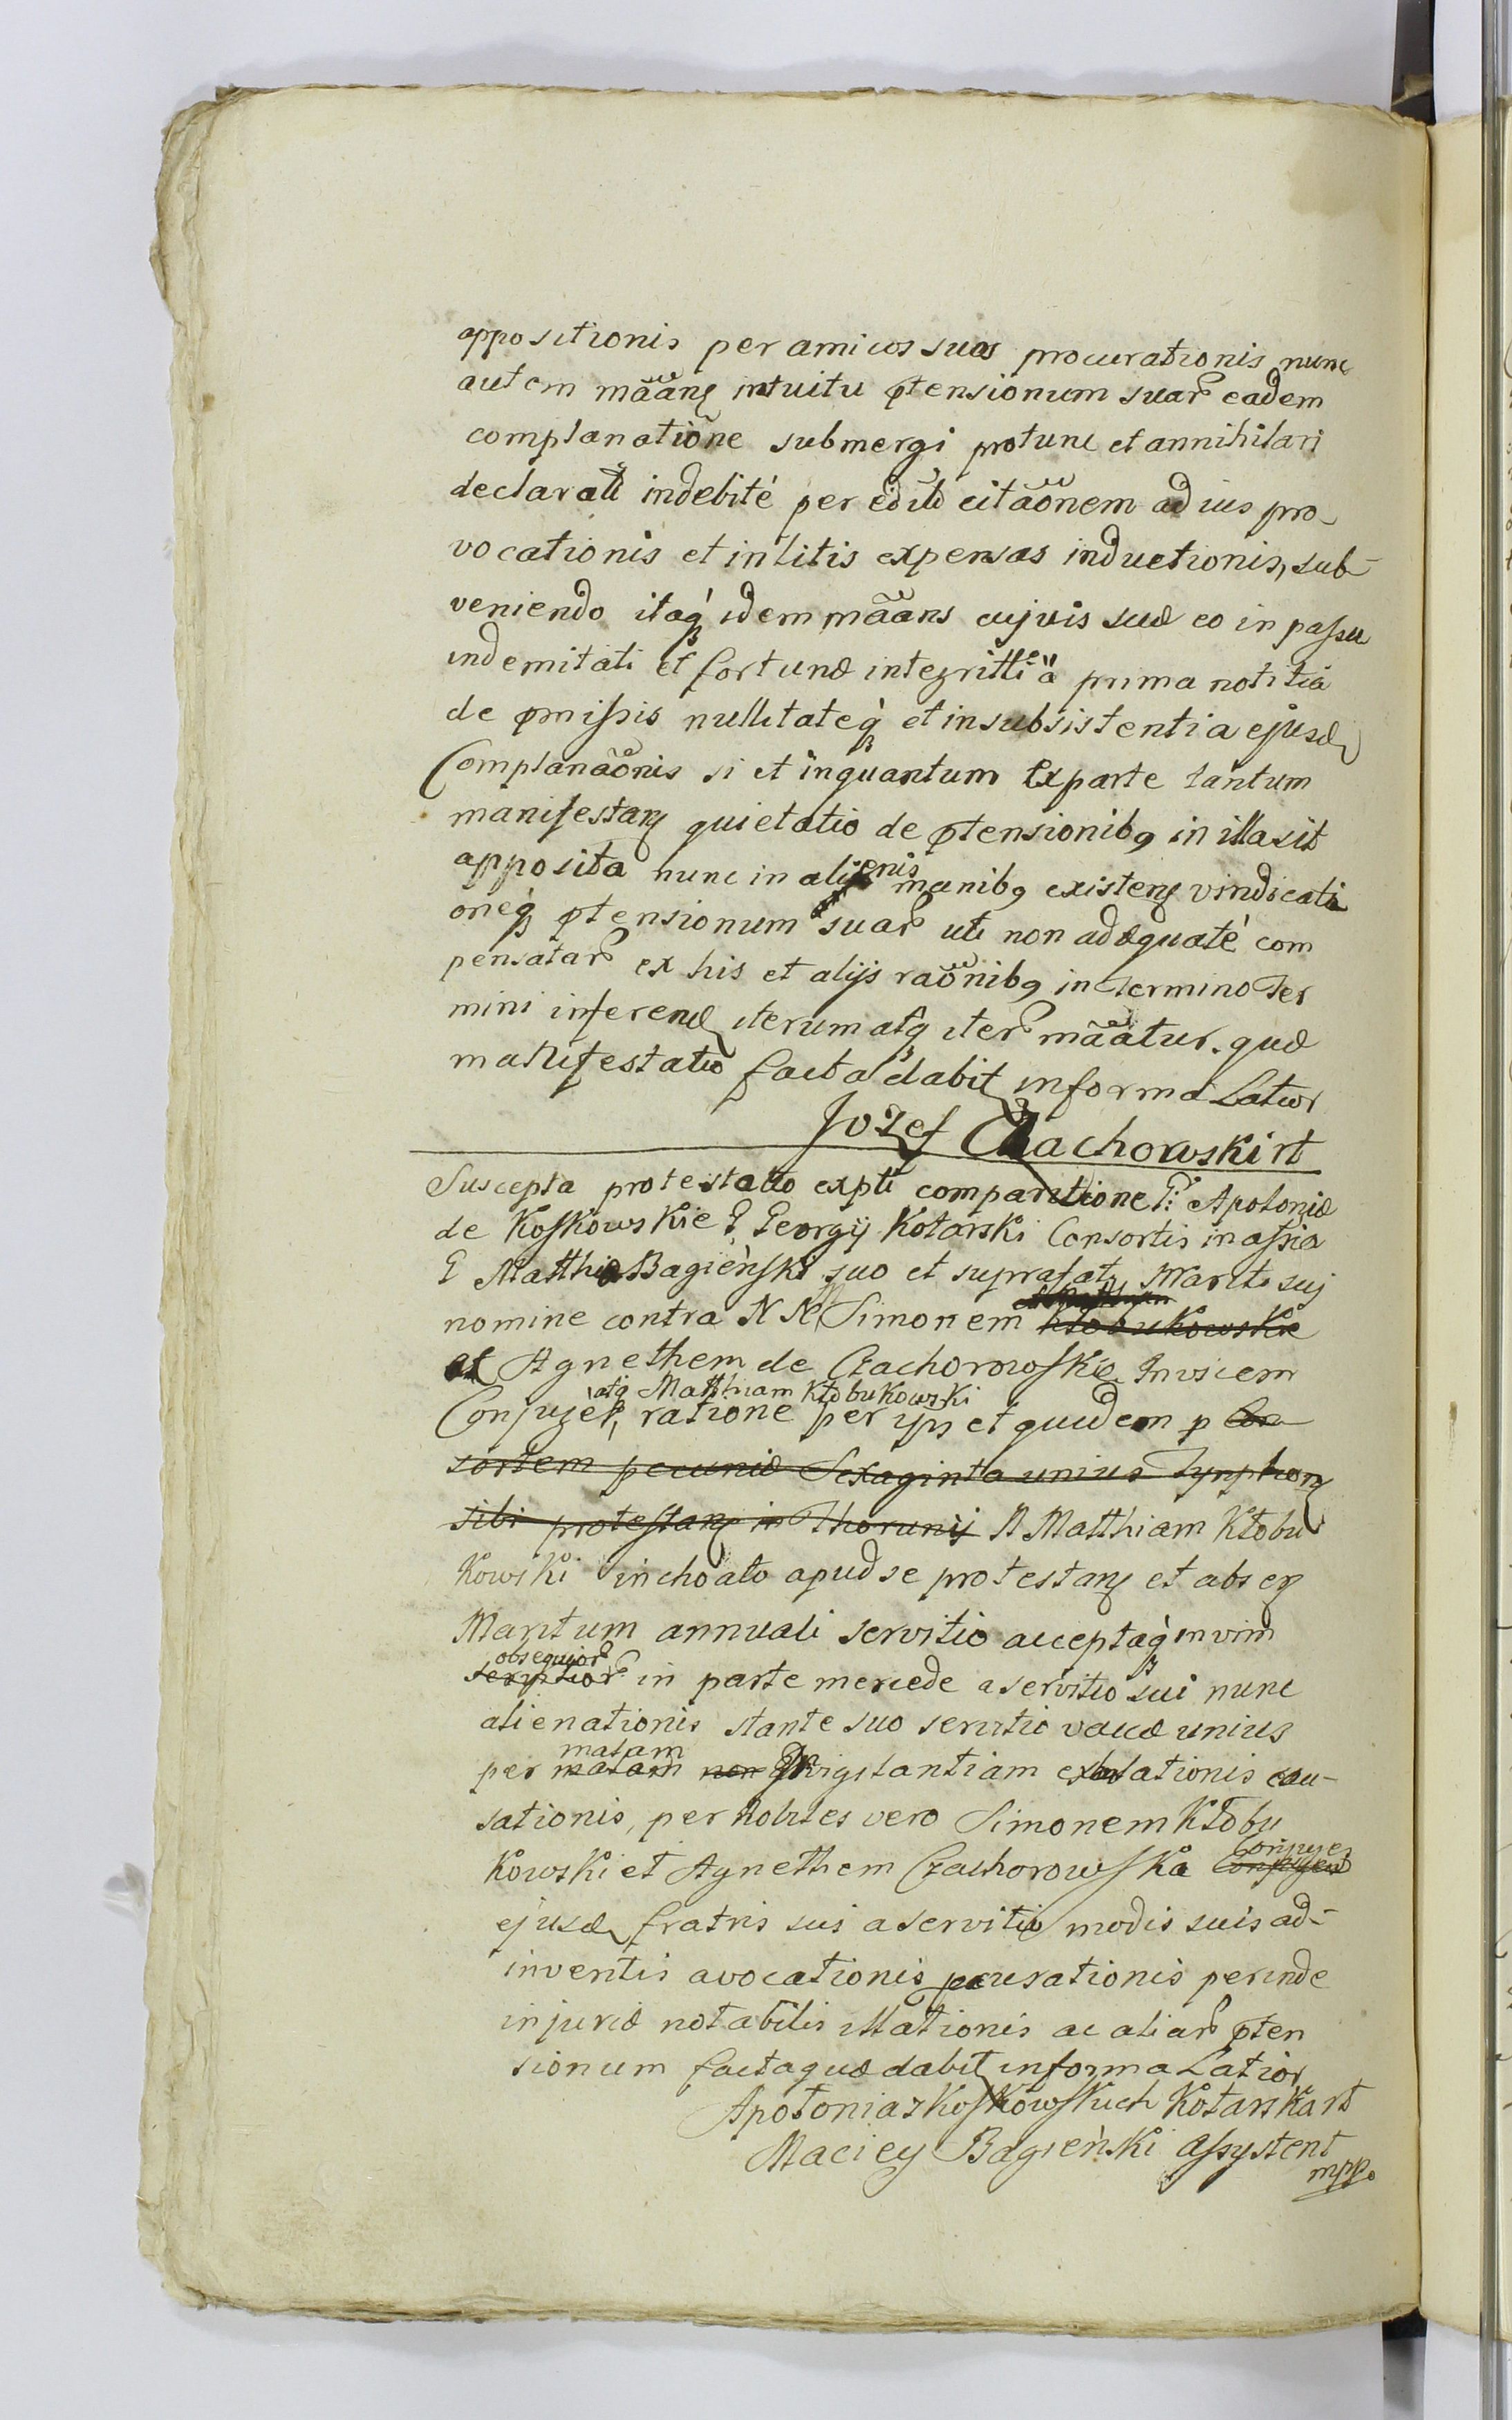 appositionis per amicos suos procurationis nunc
autem mãang intuitu ptensionum suar eadem
complanatione submergi protunc et annihilari
declarat indebité per citãonem ad ius pro-
vocationis et in litis expensas inductionis, sub-
veniendo itaq idem mãans cujvis suæ eo in passu
indemitati et fortunæ integritti ä prima notitia
de pmissis nullitateq et insubsistentia ejusd
Complanãonis si et inquantum Ex parte tantum
manifestang quietatio de ptensionibq in illa sit
apposita nunc in alienis manibq existeng vindicati
oneq ptensionum suar uti non adæquaté com
pensatar ex his et alijs raõnibq in Termino Ter
mini inferend iterum atq iter mãatur. quæ
manifestatio facta dabit in forma Latior
Jozef Czachorowski rt
Suscepta protestatio expti comparitione G Apoloniæ
de Koskowskie G Georgij Kotarski Consortis in assia
G Matthiæ Bagieński suo et suprafat Mariti sui
nomine contra N N Simonem Kłobukowskie
et Agnethem de Czachorowskie Invicem
atq Matthiam Kłobukowski
Conjuges, ratione per ips et quidem p Con
sortem pecuniæ Sexaginta unius Tynphon
sibi protestang in Thorunij N Matthiam Kłobu
kowski inchoato apud se protestang et absen
Maritum annuali servitio acceptaq in vim
obsequior
in parte mercede a servitio sui nunc
alienationis stante suo servitio vaccæ unius
malam
per malam non vigilantiam exhalationis cau-
sationis, per Nobiles vero Simonem Kłobu
Conjuges
kowski et Agnethem Czachorowska
ejusd fratris sui a servitio modis suis ad-
inventis avocationis causationis perinde
injuriæ notabilis illationis ac aliar pten
sionum facta quæ dabit in forma Latior
Apolonia z Koskowskich Kotarska rt
Maciey Bagieński Assystent
mpp.